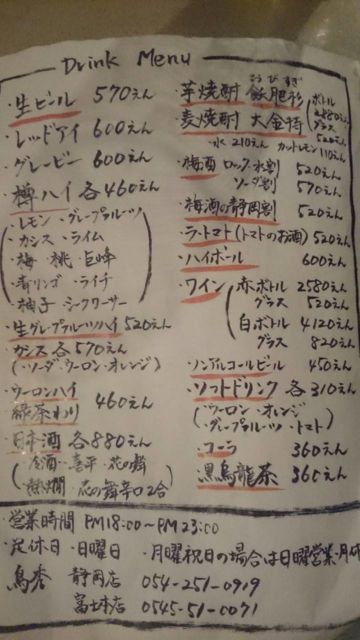 Drink Menu
・生ビール 570えん
・レッドアイ 600えん
・グレービー 600えん
・樽ハイ 各460えん
・レモン・グレープフルーツ
・カシス・ライム
・梅・桃・巨峰
・青リンゴ・ライチ
・柚子・シークワーサー
・生グレープフルーツハイ 520えん
・カシス 各570えん
(・ソーダ・ウーロン・オレンジ)
・ウーロンハイ
緑茶わり 460えん
・日本酒 各880えん
冷酒・喜平・花の舞
熱燗・花の舞辛口2合
・芋焼酎 飫肥杉
おびすぎ
ボトル
2880えん
・麦焼酎 大金持
グラス
520えん
水 210えん カットレモン 110えん
・梅酒 ロック・水割 520えん
ソーダ割 570えん
・梅酒の静岡割 520えん
・ラ・トマト(トマトのお酒) 520えん
・ハイボール 600えん
・ワイン 赤 ボトル 2580えん
グラス 520えん
白 ボトル 4120えん
グラス 820えん
・ノンアルコールビール 450えん
・ソフトドリンク 各310えん
(・ウーロン・オレンジ
・グレープフルーツ・トマト)
・コーラ 360えん
・黒烏龍茶 360えん
・営業時間 PM18:00〜PM23:00
・定休日・日曜日 ・月曜祝日の場合は日曜営業・月休
鳥秀 静岡店 054-251-0919
富士本店 0545-51-0071